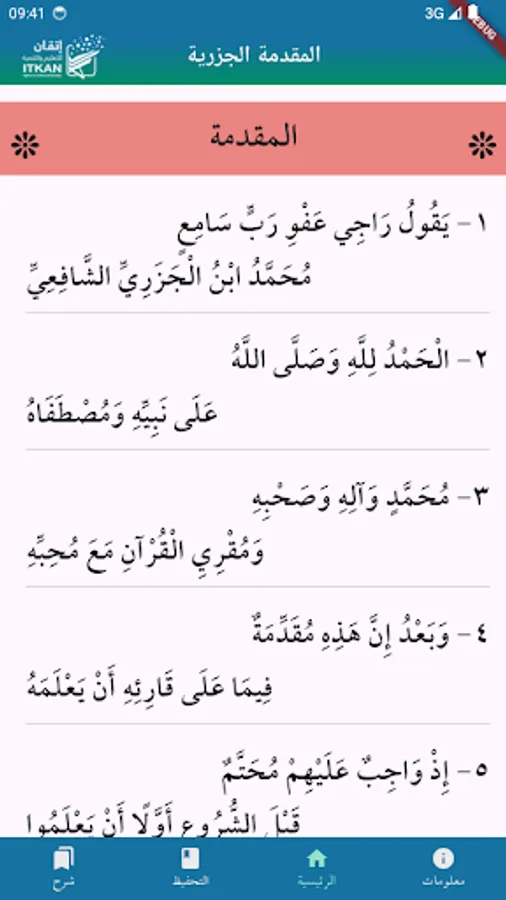 09:41
3G
DEBUG
إتقان
للتعليم والتنمية
ITKAN
المقدمة الجزرية
المقدمة
١- يَقُولُ رَاجِي عَفْوِ رَبٍّ سَامِعٍ
مُحَمَّدُ ابْنُ الْجَزَرِيِّ الشَّافِعِيِّ
٢- الْحَمْدُ لِلَّهِ وَصَلَّى اللَّهُ
عَلَى نَبِيِّهِ وَمُصْطَفَاهُ
٣- مُحَمَّدٍ وَآلِهِ وَصَحْبِهِ
وَمُقْرِيِ الْقُرْآنِ مَعَ مُحِبِّهِ
٤- وَبَعْدُ إِنَّ هَذِهِ مُقَدِّمَةٌ
فِيمَا عَلَى قَارِئِهِ أَنْ يَعْلَمَهُ
٥- إِذْ وَاجِبٌ عَلَيْهِمْ مُحَتَّمٌ
قَبْلَ الشُّرُوعِ أَوَّلًا أَنْ يَعْلَمُوا
معلومات
الرئيسية
التحفيظ
شرح